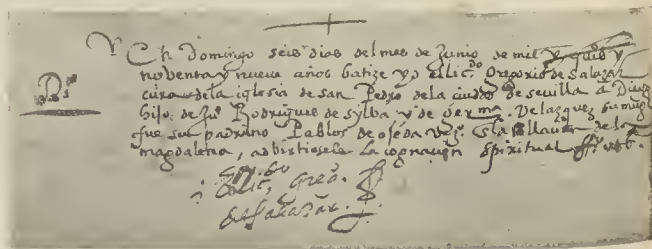 En Domingo seis dias del mes de Junio de mil y quis y
noventa y nueve años batize yo el licdo Gregorio de Salazar
cura de la iglesia de san Pedro de la ciudad de sevilla a Diego
hijo de Ju° Rodrigues de sylva y de Germa Velazquez su muger
fue su padrino Pablos de ojeda vezº de la collacion de la
magdalena, advirtiosele la cognacion spiritual
El licdo Greg°
de Salazar